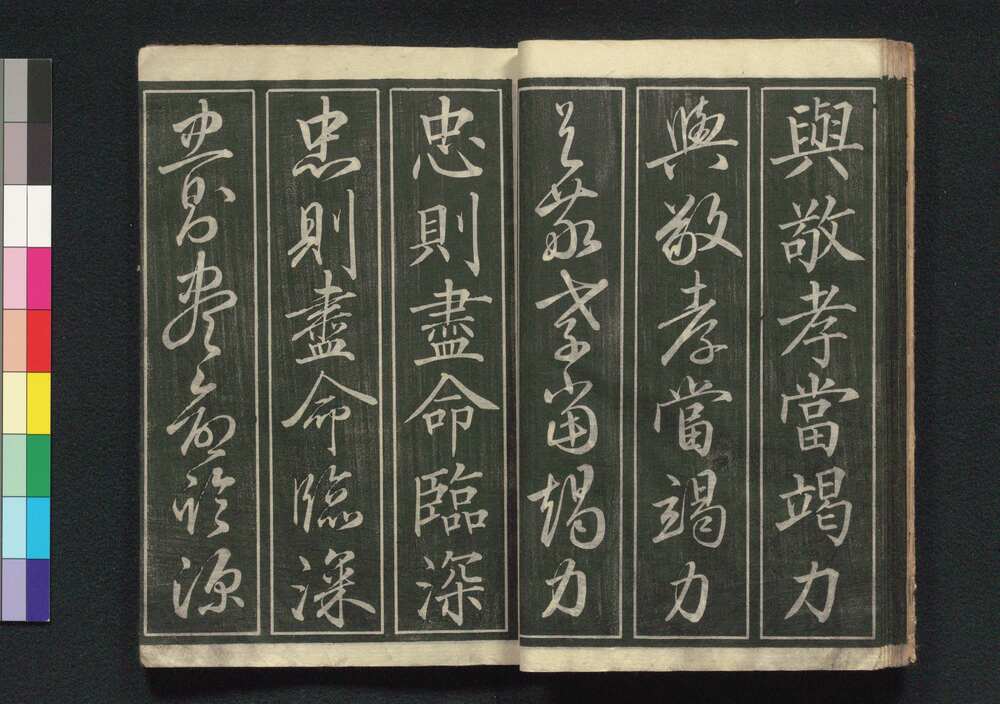 與敬孝當竭力
與敬孝當竭力
與敬孝當竭力
忠則盡命臨深
忠則盡命臨深
忠則盡命臨深